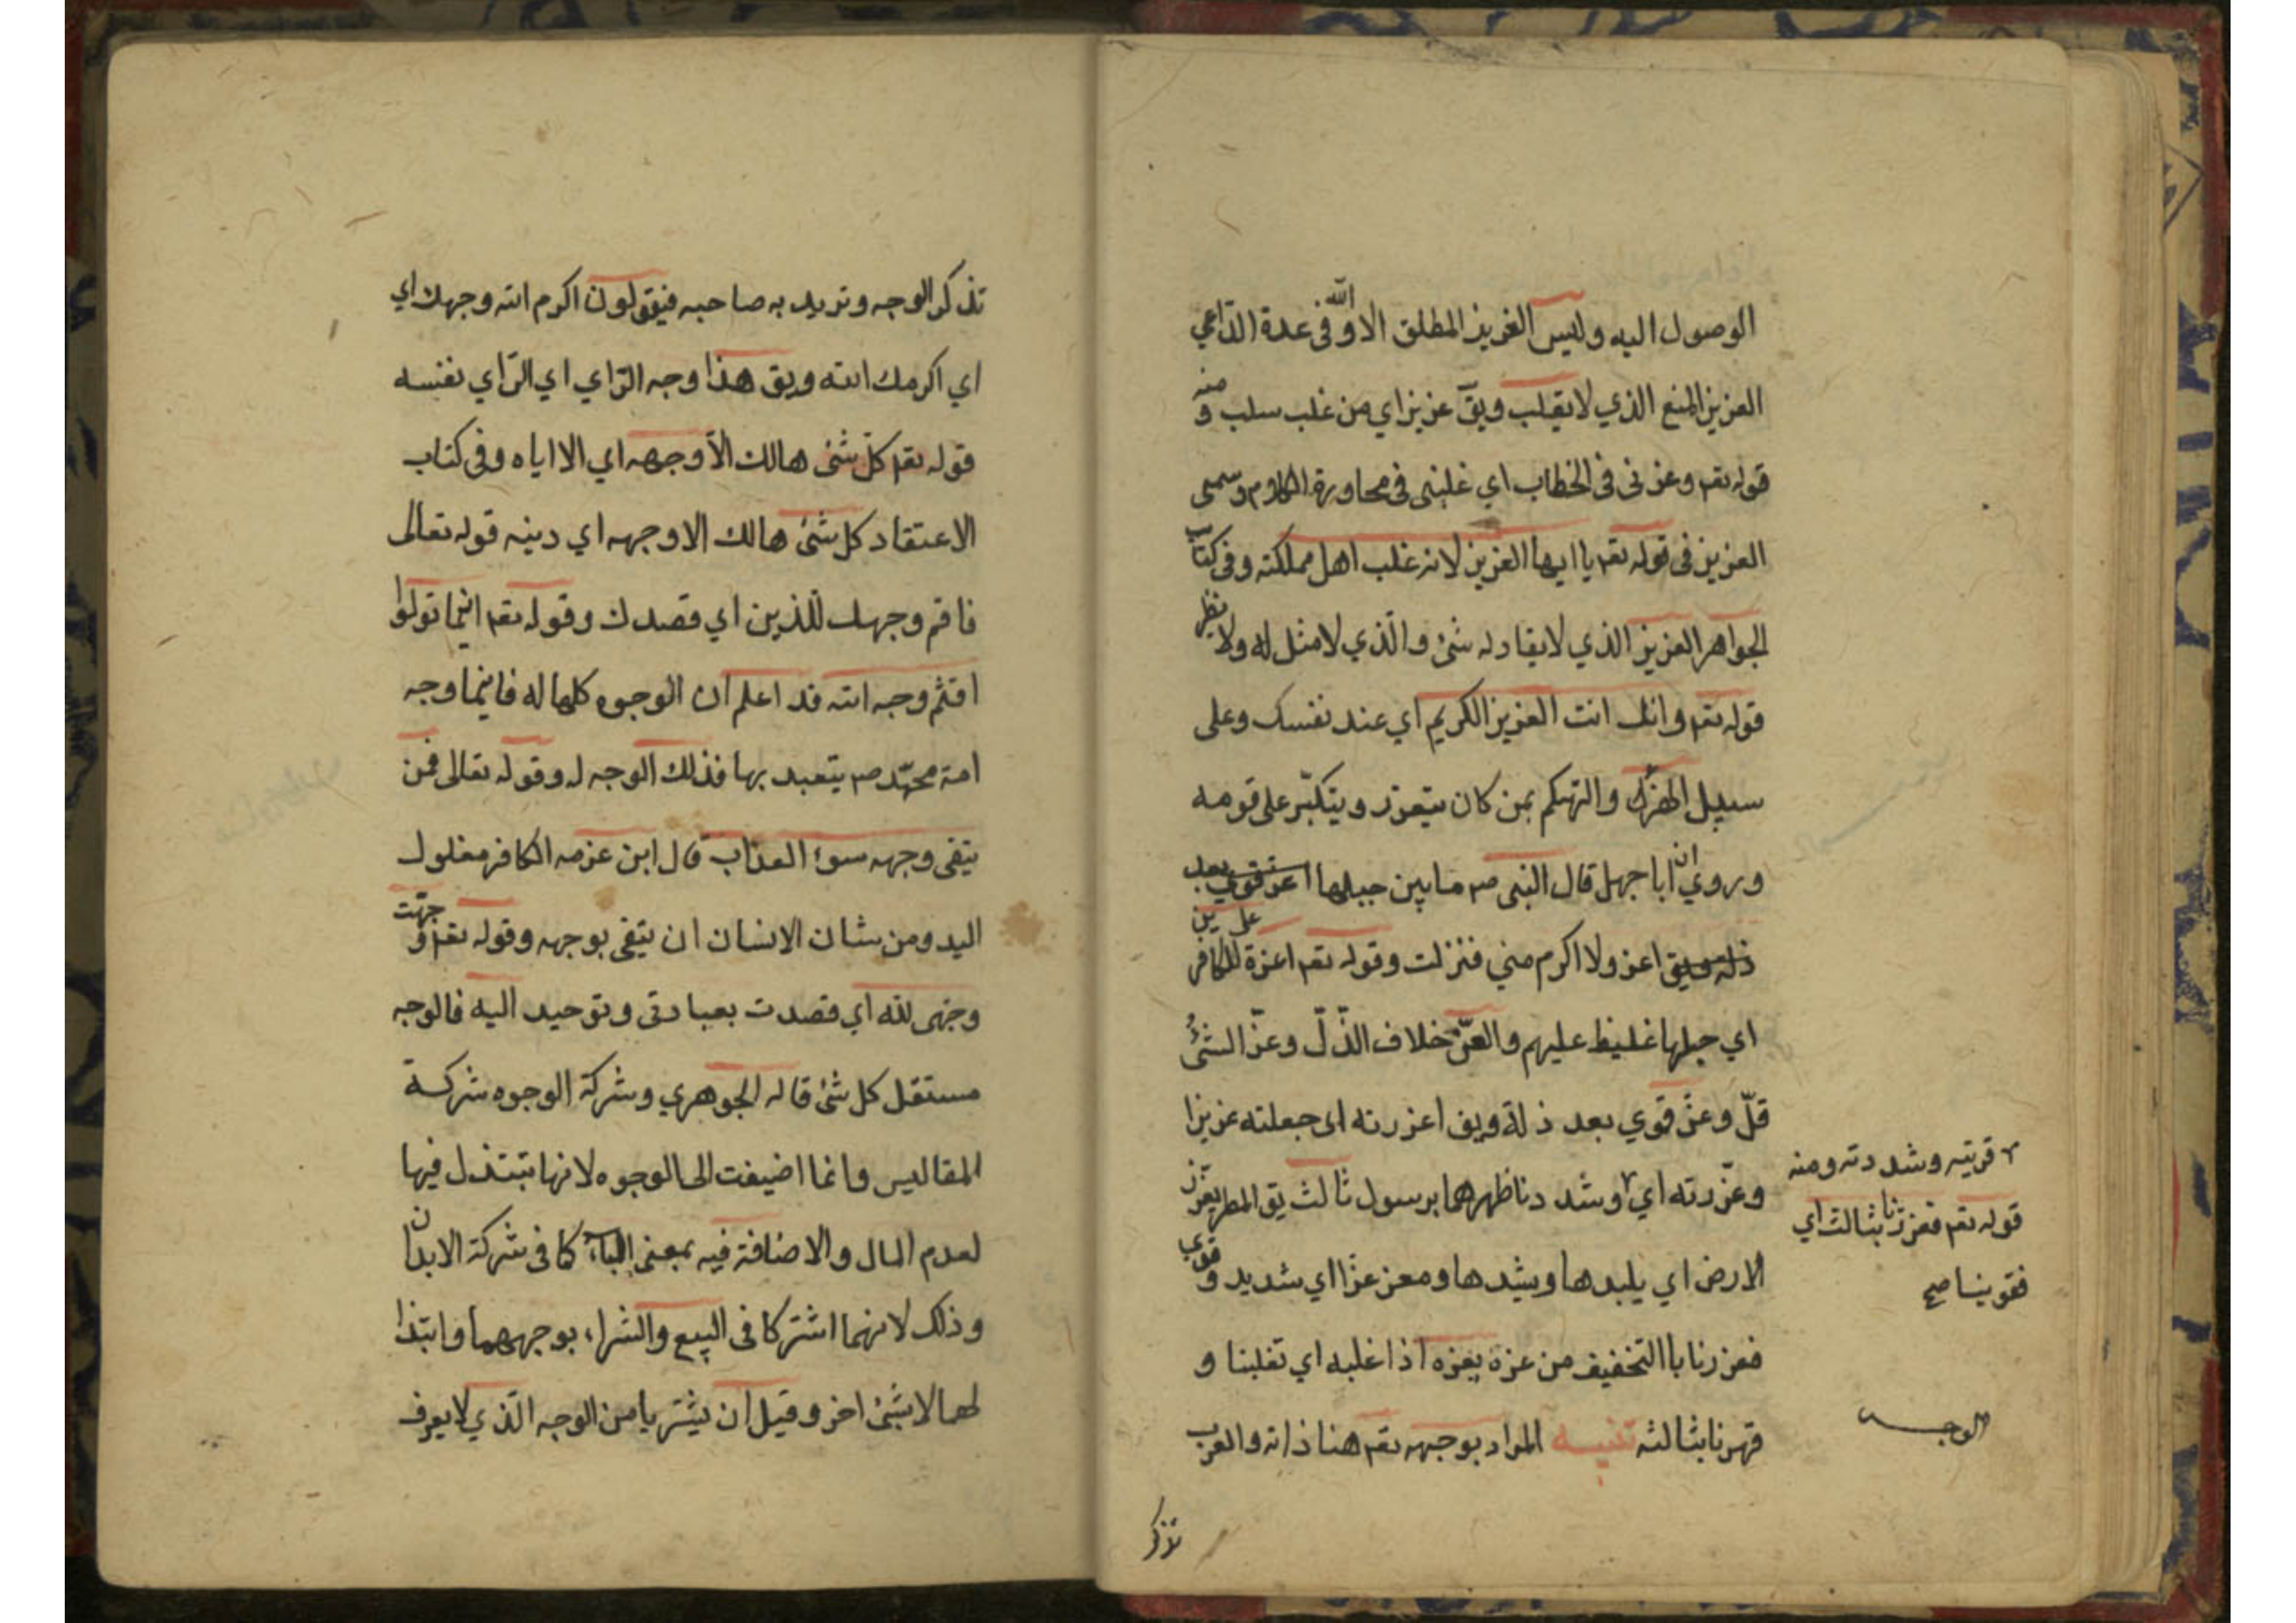 الوصول اليه وليس العزيز المطلق الا الله وفى عدة الداعي
العزيز المنيع الذي لا يغلب ويق عزيز اي من غلب سلب ومنه
قوله تعم وعزنى فى الخطاب اي غلبنى فى محاورة الكلام وسمى
العزيز فى قوله تعم يا ايها العزيز لانه غلب اهل مملكته وفى كتاب
الجواهر العزيز الذي لا يعادله شئ والذي لا مثل له ولا نظير
قوله تعم وانك انت العزيز الكريم اي عند نفسك وعلى
سبيل الهزء والتهكم بمن كان يتعزز ويتكبر على قومه
وروي ان ابا جهل قال النبى ص ما بين جبلها اعز قوي بعد
ذلة ويق اعز ولا اكرم مني فنزلت وقوله تعم اعزة على الكافرين
اي جبلها غليظ عليهم والعز خلاف الذل وعز الشئ
قل وعز قوي بعد ذلة ويق اعززته اى جعلته عزيزا
وعززته اي وشددنا ظهرهما برسول ثالث يق المطر يعزز
الارض اي يلبدها ويشدها ومعز عزا اي شديد وقوي
فعززنا بالتخفيف من عزه يعزه اذا غلبه اي تغلبنا و
قهرنا بثالثه تنبيه المراد بوجهه تعم هنا ذاته والعرب
قويته وشددته ومنه
قوله تعم فعززنا بثالث اي
فقوينا صح
الوجه
تذكر
تذكر الوجه وتريد به صاحبه فيقولون اكرم الله وجهك اي
اي اكرمك الله ويق هذا وجه الراي اي الراي نفسه
قوله تعم كل شئ هالك الا وجهه اي الا اياه وفى كتاب
الاعتقاد كل شئ هالك الا وجهه اي دينه قوله تعالى
فاقم وجهك للذين اي قصدك وقوله تعم اينما تولوا
افثم وجه الله قد اعلم ان الوجوه كلها له فاينما وجه
امة محمد ص يتعبد بها فذلك الوجه له وقوله تعالى فمن
يتقى وجهه سوء العذاب قال ابن عزمه الكافر مغلول
اليد ومن شان الانسان ان يتقى بوجهه وقوله تعم وجهت
وجهى لله اي قصدت بعبادتى وتوحيد اليه فالوجه
مستقل كل شئ قاله الجوهري وشركة الوجوه شركة
المقاليس وانما اضيفت الى الوجوه لانها تبتذل فيها
لعدم المال والاضافة فيه بمعنى الباء كما فى شركة الابدان
وذلك لانهما اشتركا فى البيع والشراء بوجههما وابتذا
لهما لا بشئ اخر وقيل ان يشتريا من الوجه الذي لا يعرف